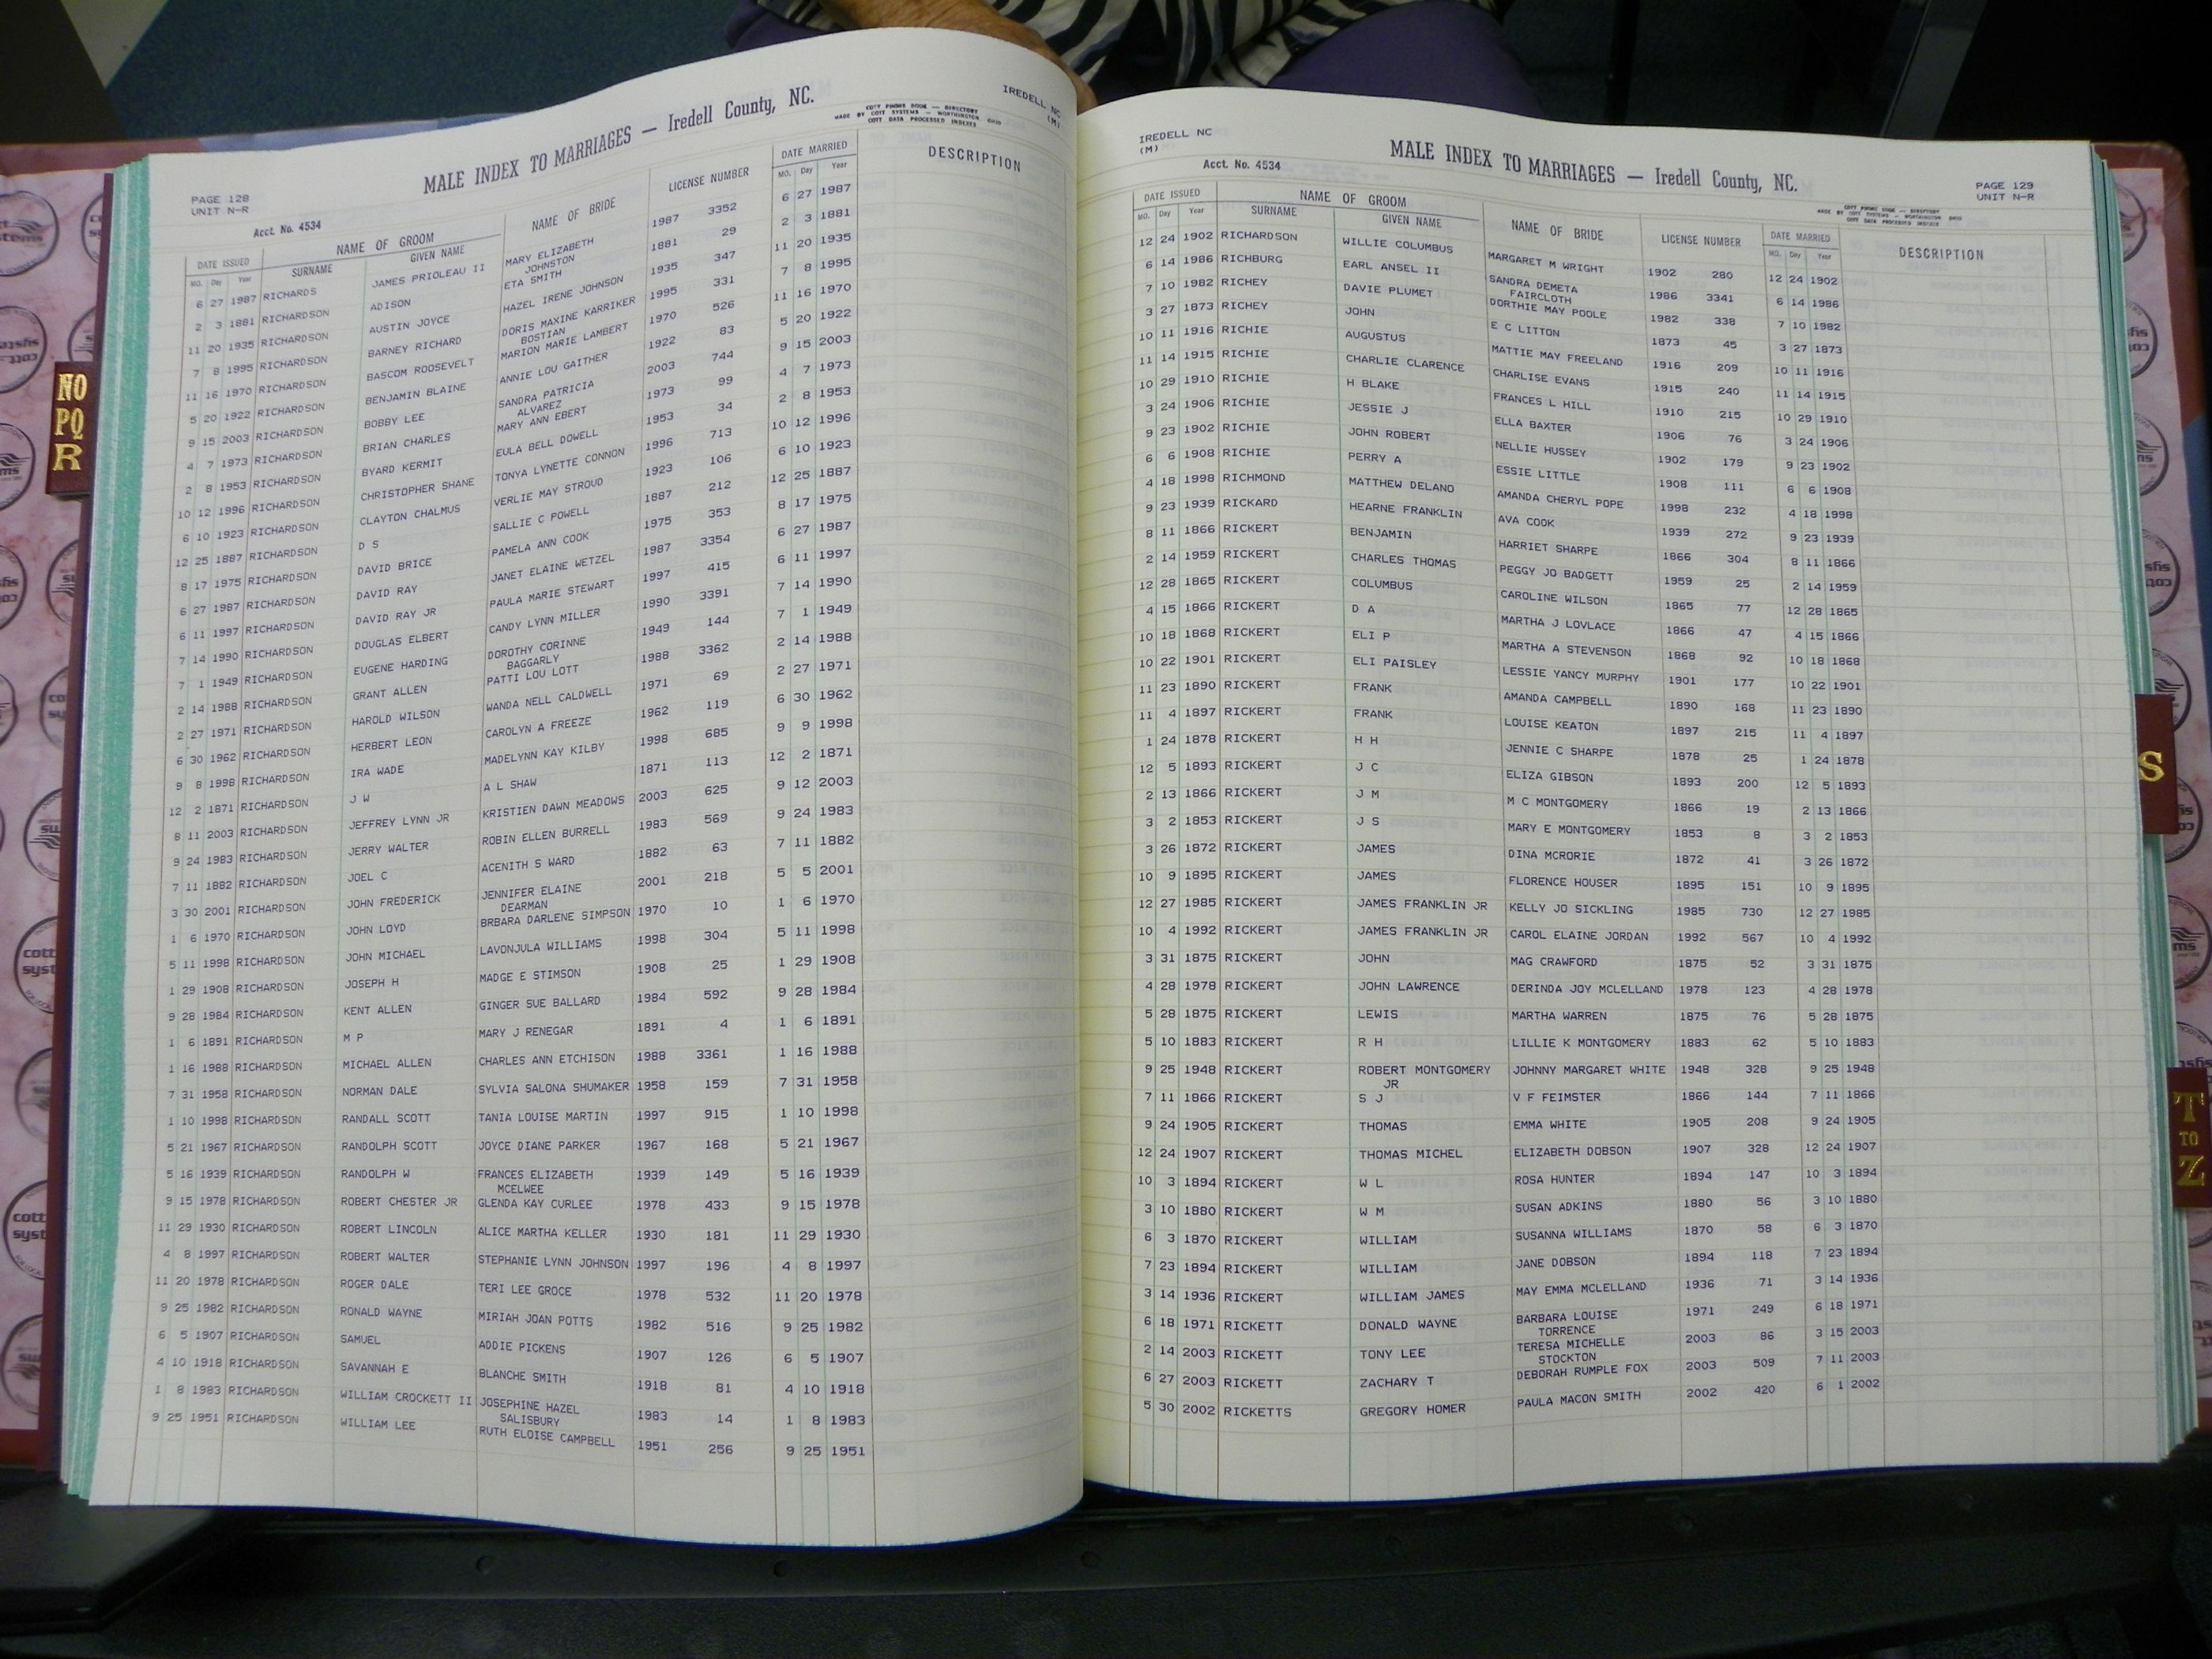 IREDELL NC
(M)
COTT PHONE BOOK — DIRECTORY
MADE BY COTT SYSTEMS — WORTHINGTON OHIO
COTT DATA PROCESSED INDEXES
MALE INDEX TO MARRIAGES — Iredell County, NC.
PAGE 128
UNIT N-R
Acct. No. 4534
DATE ISSUED NAME OF GROOM NAME OF BRIDE LICENSE NUMBER DATE MARRIED DESCRIPTION
MO. Day Year SURNAME GIVEN NAME MO. Day Year
6 27 1987 RICHARDS JAMES PRIOLEAU II MARY ELIZABETH 1987 3352 6 27 1987
JOHNSTON
2 3 1881 RICHARDSON ADISON ETA SMITH 1881 29 2 3 1881
11 20 1935 RICHARDSON AUSTIN JOYCE HAZEL IRENE JOHNSON 1935 347 11 20 1935
7 8 1995 RICHARDSON BARNEY RICHARD DORIS MAXINE KARRIKER 1995 331 7 8 1995
BOSTIAN
11 16 1970 RICHARDSON BASCOM ROOSEVELT MARION MARIE LAMBERT 1970 526 11 16 1970
5 20 1922 RICHARDSON BENJAMIN BLAINE ANNIE LOU GAITHER 1922 83 5 20 1922
9 15 2003 RICHARDSON BOBBY LEE SANDRA PATRICIA 2003 744 9 15 2003
ALVAREZ
4 7 1973 RICHARDSON BRIAN CHARLES MARY ANN EBERT 1973 99 4 7 1973
2 8 1953 RICHARDSON BYARD KERMIT EULA BELL DOWELL 1953 34 2 8 1953
10 12 1996 RICHARDSON CHRISTOPHER SHANE TONYA LYNETTE CONNON 1996 713 10 12 1996
6 10 1923 RICHARDSON CLAYTON CHALMUS VERLIE MAY STROUD 1923 106 6 10 1923
12 25 1887 RICHARDSON D S SALLIE C POWELL 1887 212 12 25 1887
8 17 1975 RICHARDSON DAVID BRICE PAMELA ANN COOK 1975 353 8 17 1975
6 27 1987 RICHARDSON DAVID RAY JANET ELAINE WETZEL 1987 3354 6 27 1987
6 11 1997 RICHARDSON DAVID RAY JR PAULA MARIE STEWART 1997 415 6 11 1997
7 14 1990 RICHARDSON DOUGLAS ELBERT CANDY LYNN MILLER 1990 3391 7 14 1990
7 1 1949 RICHARDSON EUGENE HARDING DOROTHY CORINNE 1949 144 7 1 1949
BAGGARLY
2 14 1988 RICHARDSON GRANT ALLEN PATTI LOU LOTT 1988 3362 2 14 1988
2 27 1971 RICHARDSON HAROLD WILSON WANDA NELL CALDWELL 1971 69 2 27 1971
6 30 1962 RICHARDSON HERBERT LEON CAROLYN A FREEZE 1962 119 6 30 1962
9 8 1998 RICHARDSON IRA WADE MADELYNN KAY KILBY 1998 685 9 9 1998
12 2 1871 RICHARDSON J W A L SHAW 1871 113 12 2 1871
8 11 2003 RICHARDSON JEFFREY LYNN JR KRISTIEN DAWN MEADOWS 2003 625 9 12 2003
9 24 1983 RICHARDSON JERRY WALTER ROBIN ELLEN BURRELL 1983 569 9 24 1983
7 11 1882 RICHARDSON JOEL C ACENITH S WARD 1882 63 7 11 1882
3 30 2001 RICHARDSON JOHN FREDERICK JENNIFER ELAINE 2001 218 5 5 2001
DEARMAN
1 6 1970 RICHARDSON JOHN LOYD BRBARA DARLENE SIMPSON 1970 10 1 6 1970
5 11 1998 RICHARDSON JOHN MICHAEL LAVONJULA WILLIAMS 1998 304 5 11 1998
1 29 1908 RICHARDSON JOSEPH H MADGE E STIMSON 1908 25 1 29 1908
9 28 1984 RICHARDSON KENT ALLEN GINGER SUE BALLARD 1984 592 9 28 1984
1 6 1891 RICHARDSON M P MARY J RENEGAR 1891 4 1 6 1891
1 16 1988 RICHARDSON MICHAEL ALLEN CHARLES ANN ETCHISON 1988 3361 1 16 1988
7 31 1958 RICHARDSON NORMAN DALE SYLVIA SALONA SHUMAKER 1958 159 7 31 1958
1 10 1998 RICHARDSON RANDALL SCOTT TANIA LOUISE MARTIN 1997 915 1 10 1998
5 21 1967 RICHARDSON RANDOLPH SCOTT JOYCE DIANE PARKER 1967 168 5 21 1967
5 16 1939 RICHARDSON RANDOLPH W FRANCES ELIZABETH 1939 149 5 16 1939
MCELWEE
9 15 1978 RICHARDSON ROBERT CHESTER JR GLENDA KAY CURLEE 1978 433 9 15 1978
11 29 1930 RICHARDSON ROBERT LINCOLN ALICE MARTHA KELLER 1930 181 11 29 1930
4 8 1997 RICHARDSON ROBERT WALTER STEPHANIE LYNN JOHNSON 1997 196 4 8 1997
11 20 1978 RICHARDSON ROGER DALE TERI LEE GROCE 1978 532 11 20 1978
9 25 1982 RICHARDSON RONALD WAYNE MIRIAH JOAN POTTS 1982 516 9 25 1982
6 5 1907 RICHARDSON SAMUEL ADDIE PICKENS 1907 126 6 5 1907
4 10 1918 RICHARDSON SAVANNAH E BLANCHE SMITH 1918 81 4 10 1918
1 8 1983 RICHARDSON WILLIAM CROCKETT II JOSEPHINE HAZEL 1983 14 1 8 1983
SALISBURY
9 25 1951 RICHARDSON WILLIAM LEE RUTH ELOISE CAMPBELL 1951 256 9 25 1951
IREDELL NC
(M)
Acct. No. 4534
MALE INDEX TO MARRIAGES — Iredell County, NC.
PAGE 129
UNIT N-R
COTT PHONE BOOK — DIRECTORY
MADE BY COTT SYSTEMS — WORTHINGTON OHIO
COTT DATA PROCESSED INDEXES
DATE ISSUED NAME OF GROOM NAME OF BRIDE LICENSE NUMBER DATE MARRIED DESCRIPTION
MO. Day Year SURNAME GIVEN NAME MO. Day Year
12 24 1902 RICHARDSON WILLIE COLUMBUS MARGARET M WRIGHT 1902 280 12 24 1902
6 14 1986 RICHBURG EARL ANSEL II SANDRA DEMETA 1986 3341 6 14 1986
FAIRCLOTH
7 10 1982 RICHEY DAVIE PLUMET DORTHIE MAY POOLE 1982 338 7 10 1982
3 27 1873 RICHEY JOHN E C LITTON 1873 45 3 27 1873
10 11 1916 RICHIE AUGUSTUS MATTIE MAY FREELAND 1916 209 10 11 1916
11 14 1915 RICHIE CHARLIE CLARENCE CHARLISE EVANS 1915 240 11 14 1915
10 29 1910 RICHIE H BLAKE FRANCES L HILL 1910 215 10 29 1910
3 24 1906 RICHIE JESSIE J ELLA BAXTER 1906 76 3 24 1906
9 23 1902 RICHIE JOHN ROBERT NELLIE HUSSEY 1902 179 9 23 1902
6 6 1908 RICHIE PERRY A ESSIE LITTLE 1908 111 6 6 1908
4 18 1998 RICHMOND MATTHEW DELANO AMANDA CHERYL POPE 1998 232 4 18 1998
9 23 1939 RICKARD HEARNE FRANKLIN AVA COOK 1939 272 9 23 1939
8 11 1866 RICKERT BENJAMIN HARRIET SHARPE 1866 304 8 11 1866
2 14 1959 RICKERT CHARLES THOMAS PEGGY JO BADGETT 1959 25 2 14 1959
12 28 1865 RICKERT COLUMBUS CAROLINE WILSON 1865 77 12 28 1865
4 15 1866 RICKERT D A MARTHA J LOVLACE 1866 47 4 15 1866
10 18 1868 RICKERT ELI P MARTHA A STEVENSON 1868 92 10 18 1868
10 22 1901 RICKERT ELI PAISLEY LESSIE YANCY MURPHY 1901 177 10 22 1901
11 23 1890 RICKERT FRANK AMANDA CAMPBELL 1890 168 11 23 1890
11 4 1897 RICKERT FRANK LOUISE KEATON 1897 215 11 4 1897
1 24 1878 RICKERT H H JENNIE C SHARPE 1878 25 1 24 1878
12 5 1893 RICKERT J C ELIZA GIBSON 1893 200 12 5 1893
2 13 1866 RICKERT J M M C MONTGOMERY 1866 19 2 13 1866
3 2 1853 RICKERT J S MARY E MONTGOMERY 1853 8 3 2 1853
3 26 1872 RICKERT JAMES DINA MCRORIE 1872 41 3 26 1872
10 9 1895 RICKERT JAMES FLORENCE HOUSER 1895 151 10 9 1895
12 27 1985 RICKERT JAMES FRANKLIN JR KELLY JO SICKLING 1985 730 12 27 1985
10 4 1992 RICKERT JAMES FRANKLIN JR CAROL ELAINE JORDAN 1992 567 10 4 1992
3 31 1875 RICKERT JOHN MAG CRAWFORD 1875 52 3 31 1875
4 28 1978 RICKERT JOHN LAWRENCE DERINDA JOY MCLELLAND 1978 123 4 28 1978
5 28 1875 RICKERT LEWIS MARTHA WARREN 1875 76 5 28 1875
5 10 1883 RICKERT R H LILLIE K MONTGOMERY 1883 62 5 10 1883
9 25 1948 RICKERT ROBERT MONTGOMERY JOHNNY MARGARET WHITE 1948 328 9 25 1948
JR
7 11 1866 RICKERT S J V F FEIMSTER 1866 144 7 11 1866
9 24 1905 RICKERT THOMAS EMMA WHITE 1905 208 9 24 1905
12 24 1907 RICKERT THOMAS MICHEL ELIZABETH DOBSON 1907 328 12 24 1907
10 3 1894 RICKERT W L ROSA HUNTER 1894 147 10 3 1894
3 10 1880 RICKERT W M SUSAN ADKINS 1880 56 3 10 1880
6 3 1870 RICKERT WILLIAM SUSANNA WILLIAMS 1870 58 6 3 1870
7 23 1894 RICKERT WILLIAM JANE DOBSON 1894 118 7 23 1894
3 14 1936 RICKERT WILLIAM JAMES MAY EMMA MCLELLAND 1936 71 3 14 1936
6 18 1971 RICKETT DONALD WAYNE BARBARA LOUISE 1971 249 6 18 1971
TORRENCE
2 14 2003 RICKETT TONY LEE TERESA MICHELLE 2003 86 3 15 2003
STOCKTON
6 27 2003 RICKETT ZACHARY T DEBORAH RUMPLE FOX 2003 509 7 11 2003
5 30 2002 RICKETTS GREGORY HOMER PAULA MACON SMITH 2002 420 6 1 2002
NO
PQ
R
S
T
TO
Z